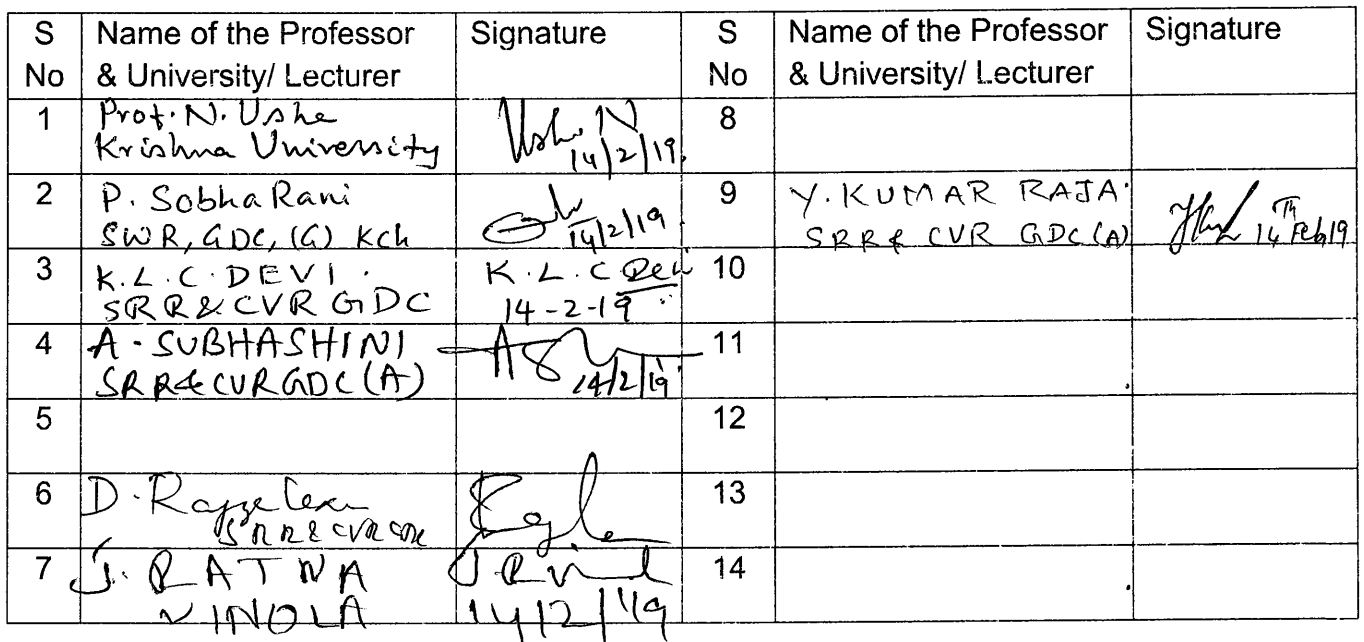 S No | Name of the Professor & University/ Lecturer | Signature | S No | Name of the Professor & University/ Lecturer | Signature
1 | Prof. N. Usha Krishna University | Usha. N 14/2/19. | 8
2 | P. Sobha Rani SWR, GDC, (G) Kch | 14/2/19 | 9 | Y. KUMAR RAJA. SRR & CVR GDC (A) | 14th Feb 19
3 | K. L. C. DEVI. SRR & CVR GDC | K. L. C Devi 14-2-19 | 10
4 | A. SUBHASHINI SRR & CVR GDC (A) | 14/2/19 | 11
5 | 12
6 | D. SRR & CVR GDC | 13
7 | J. RATNA VINOLA | 14/2/19 | 14